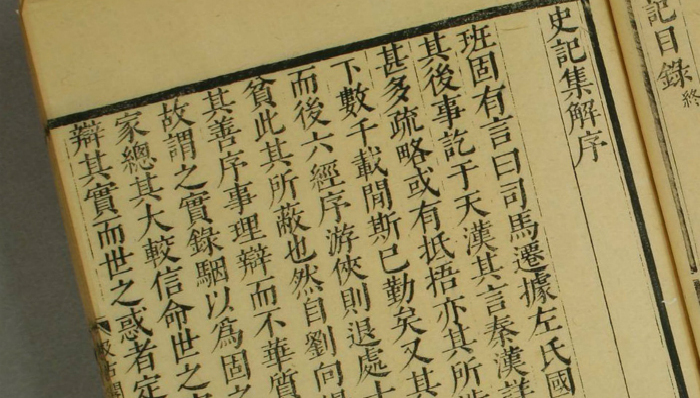 記目錄終
史記集解序
班固有言曰司馬遷據左氏國
其後事訖于天漢其言秦漢詳
甚多疏略或有抵捂亦其所
下數千載閒斯已勤矣又其
而後六經序游俠則退處士
貧此其所蔽也然自劉向揚
其善序事理辯而不華質
故謂之實錄駰以爲固之
家總其大較信命世之
辯其實而世之惑者定